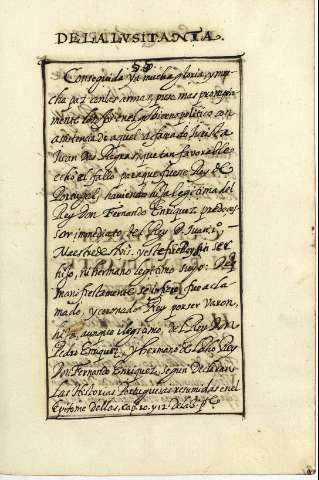 DE LA LUSITANIA.
Conseguida ya mucha gloria, y mu
cha paz con las armas, puso mas prompta
mente en el gobierno politico, con
asistencia de aquel afamado Jurista
Juan das Regras, que tan favorable
echo el fallo para que fuese Rey de
Portugal, haviendo hija legitima del
Rey Don Fernando Enriquez predeces
sor immediato del Rey D. Juan 1º
Maestre de Avis, y este fue Rey sin ser
hijo, ni hermano legitimo suyo: De
manifiestamente se infiere fue acla
mado, y coronado Rey por ser varon,
hijo, aunque ilegitimo, del Rey Don
Pedro Enriquez, y hermano de dicho Rey
Don Fernando Enriquez, segun declaran
Las Historias Portuguesas resumidas en el
Epitome dellas, Cap. 10. y 12 de la 3. pte.